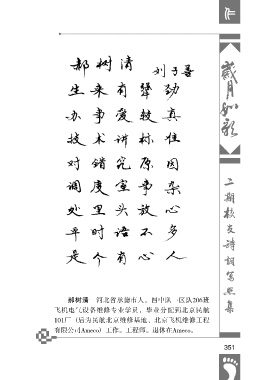 郝树清
刘子善
生来有犟劲
办事爱较真
技术讲标准
对错究原因
调度室事杂
处里头放心
平时语不多
是个有心人
郝树清 河北省承德市人。四中队一区队206班
飞机电气设备维修专业学员,毕业分配到北京民航
101厂(后为民航北京维修基地、北京飞机维修工程
有限公司Ameco)工作。工程师。退休在Ameco。
岁月如歌
二期校友诗词写照集
351